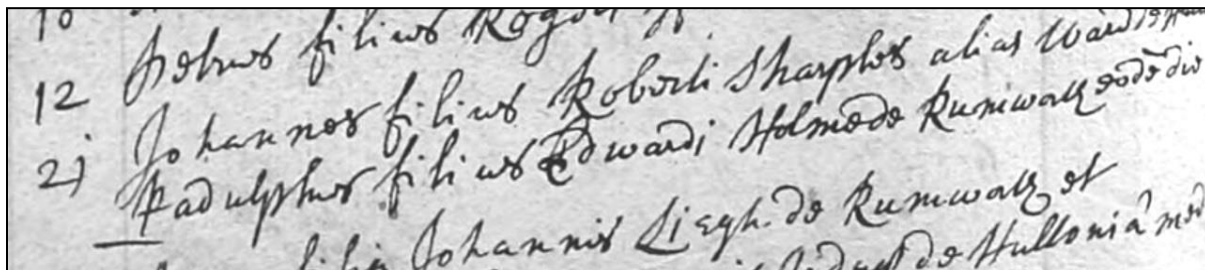 10
12 Petrus filius Rogeri
Johannes filius Roberti Sharples alias Ward de
21 Radulphus filius Edwardi Holme de Rumworth eodē die
Johannis Liegh. de Rumworth et
de Hultoniâ med